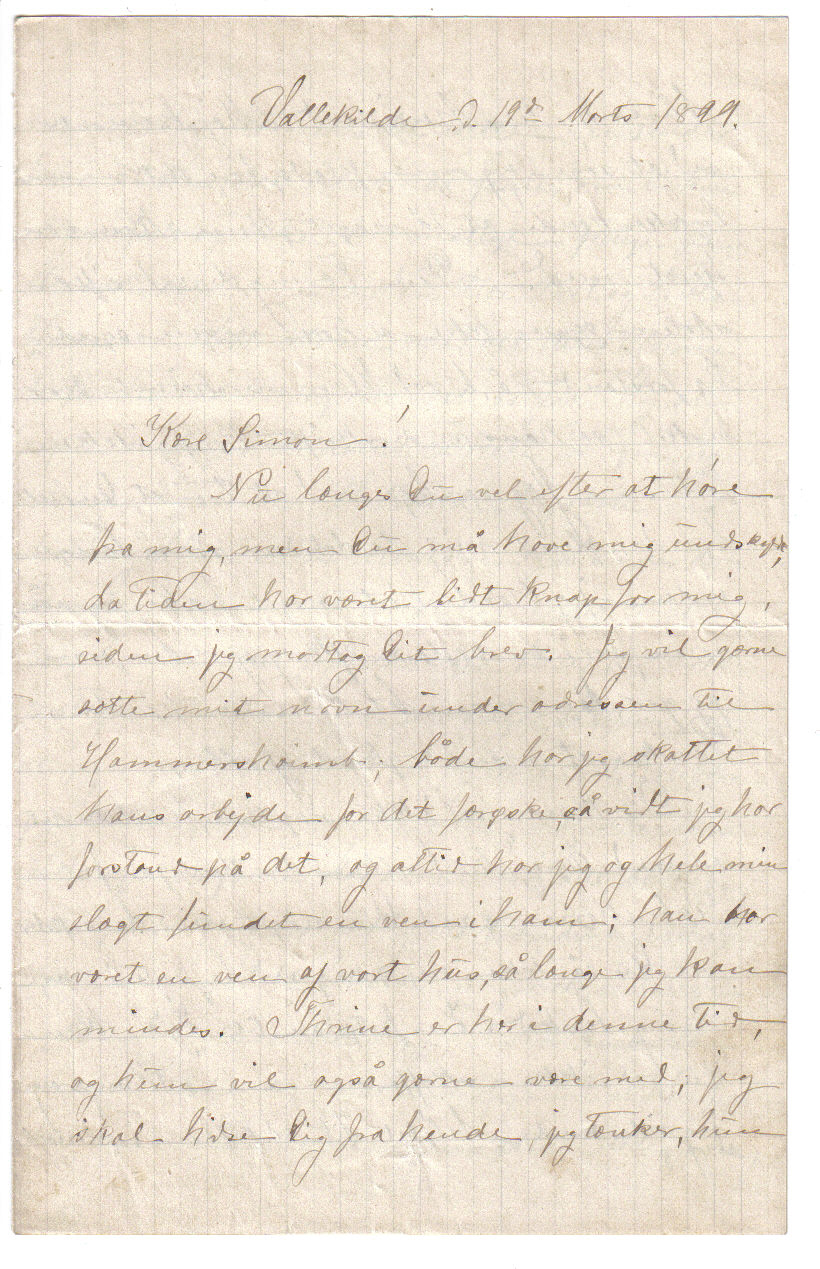 Vallekilde d. 19d Marts 1899.
Kære Simon!
Nu længes Du vel efter at høre
fra mig, men Du må have mig undskyldt,
da tiden har været lidt knap for mig,
siden jeg modtog Dit brev. Jeg vil gærne
sætte mit navn under adressen til
Hammershaimb; både har jeg skattet
hans arbejde for det færøske, så vidt jeg har
forstand på det, og altid har jeg og hele min
slægt fundet en ven i ham; han har
været en ven af vort hus, så længe jeg kan
mindes. Thrine er her i denne tid,
og hun vil også gærne være med; jeg
skal hilse Dig fra hende, jeg tænker, hun